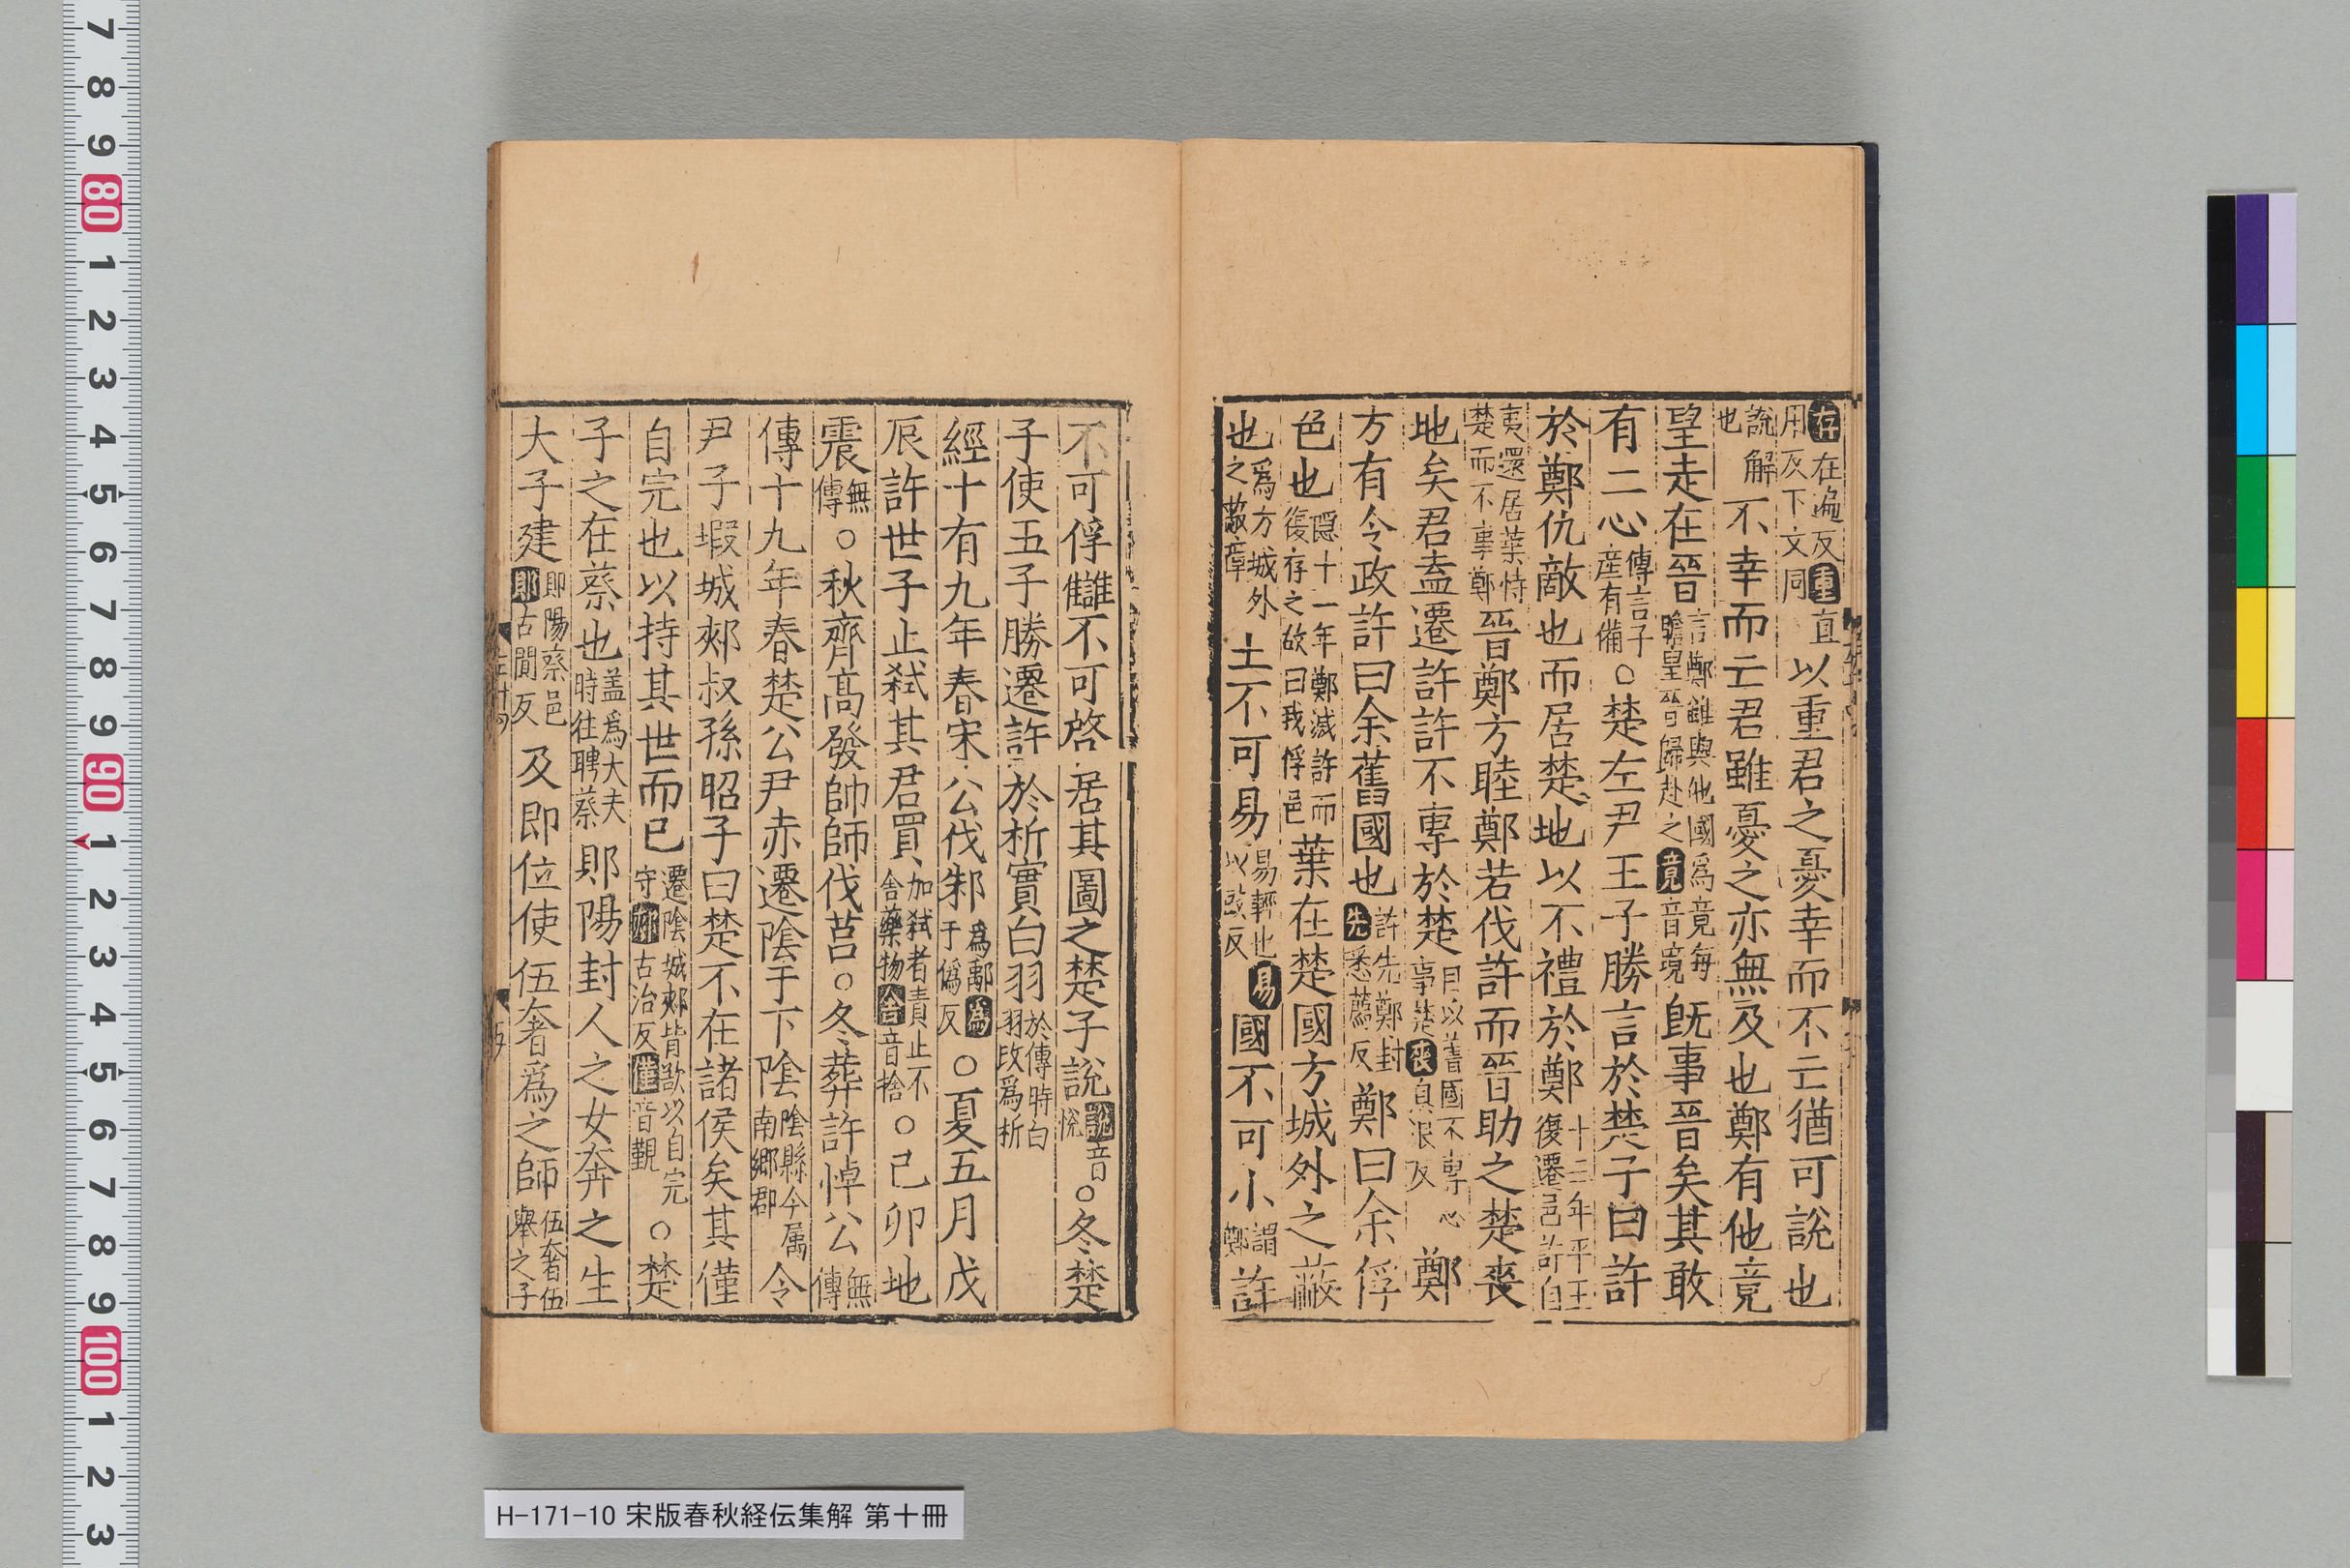 存在遍反重直用反下文同以重君之憂幸而不亡猶可說也
說解也不幸而亡君雖憂之亦無及也鄭有他竟
望走在晉言鄭雖與他國爲竟每瞻望晉歸赴之竟音境既事晉矣其敢
有二心傳言子産有備○楚左尹王子勝言於楚子曰許
於鄭仇敵也而居楚地以不禮於鄭十三年平王復遷邑許自
夷還居葉恃楚而不事鄭晉鄭方睦鄭若伐許而晉助之楚喪
地矣君盍遷許許不專於楚自以舊國不專心事楚喪息浪反鄭
方有令政許曰余舊國也許先鄭封先悉薦反鄭曰余俘
邑也隱十一年鄭滅許而復存之故曰我俘邑葉在楚國方城外之蔽
也爲方城外之蔽障土不可易易輕也易以豉反國不可小謂鄭許
不可俘讎不可啓居其圖之楚子說說音悅○冬楚
子使王子勝遷許於析實白羽於傳時白羽改爲析
經十有九年春宋公伐邾爲鄅爲于僞反○夏五月戊
辰許世子止弑其君買加弑者責止不舍藥物舍音捨○己卯地
震無傳○秋齊髙發帥師伐莒○冬葬許悼公無傳
傳十九年春楚公尹赤遷陰于下陰陰縣今属南郷郡令
尹子瑕城郟叔孫昭子曰楚不在諸侯矣其僅
自完也以持其世而已遷陰城郟皆欲以自完守郟古洽反僅音覲○楚
子之在蔡也盖爲大夫時往聘蔡郹陽封人之女奔之生
大子建郹陽蔡邑郹古闃反及即位使伍奢爲之師伍奢伍舉之子
H-171-10 宋版春秋経伝集解 第十冊